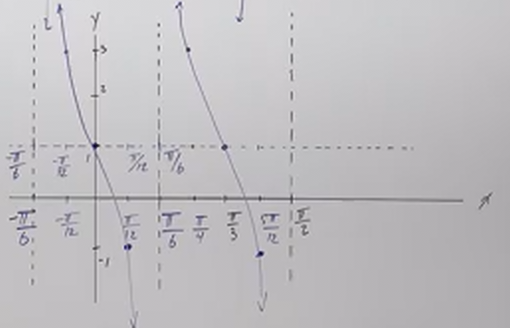 y
3
2
-π/6 -π/12 1 π/12 π/6
x
-π/6 -π/12 π/12 π/6 π/4 π/3 5π/12 π/2
-1